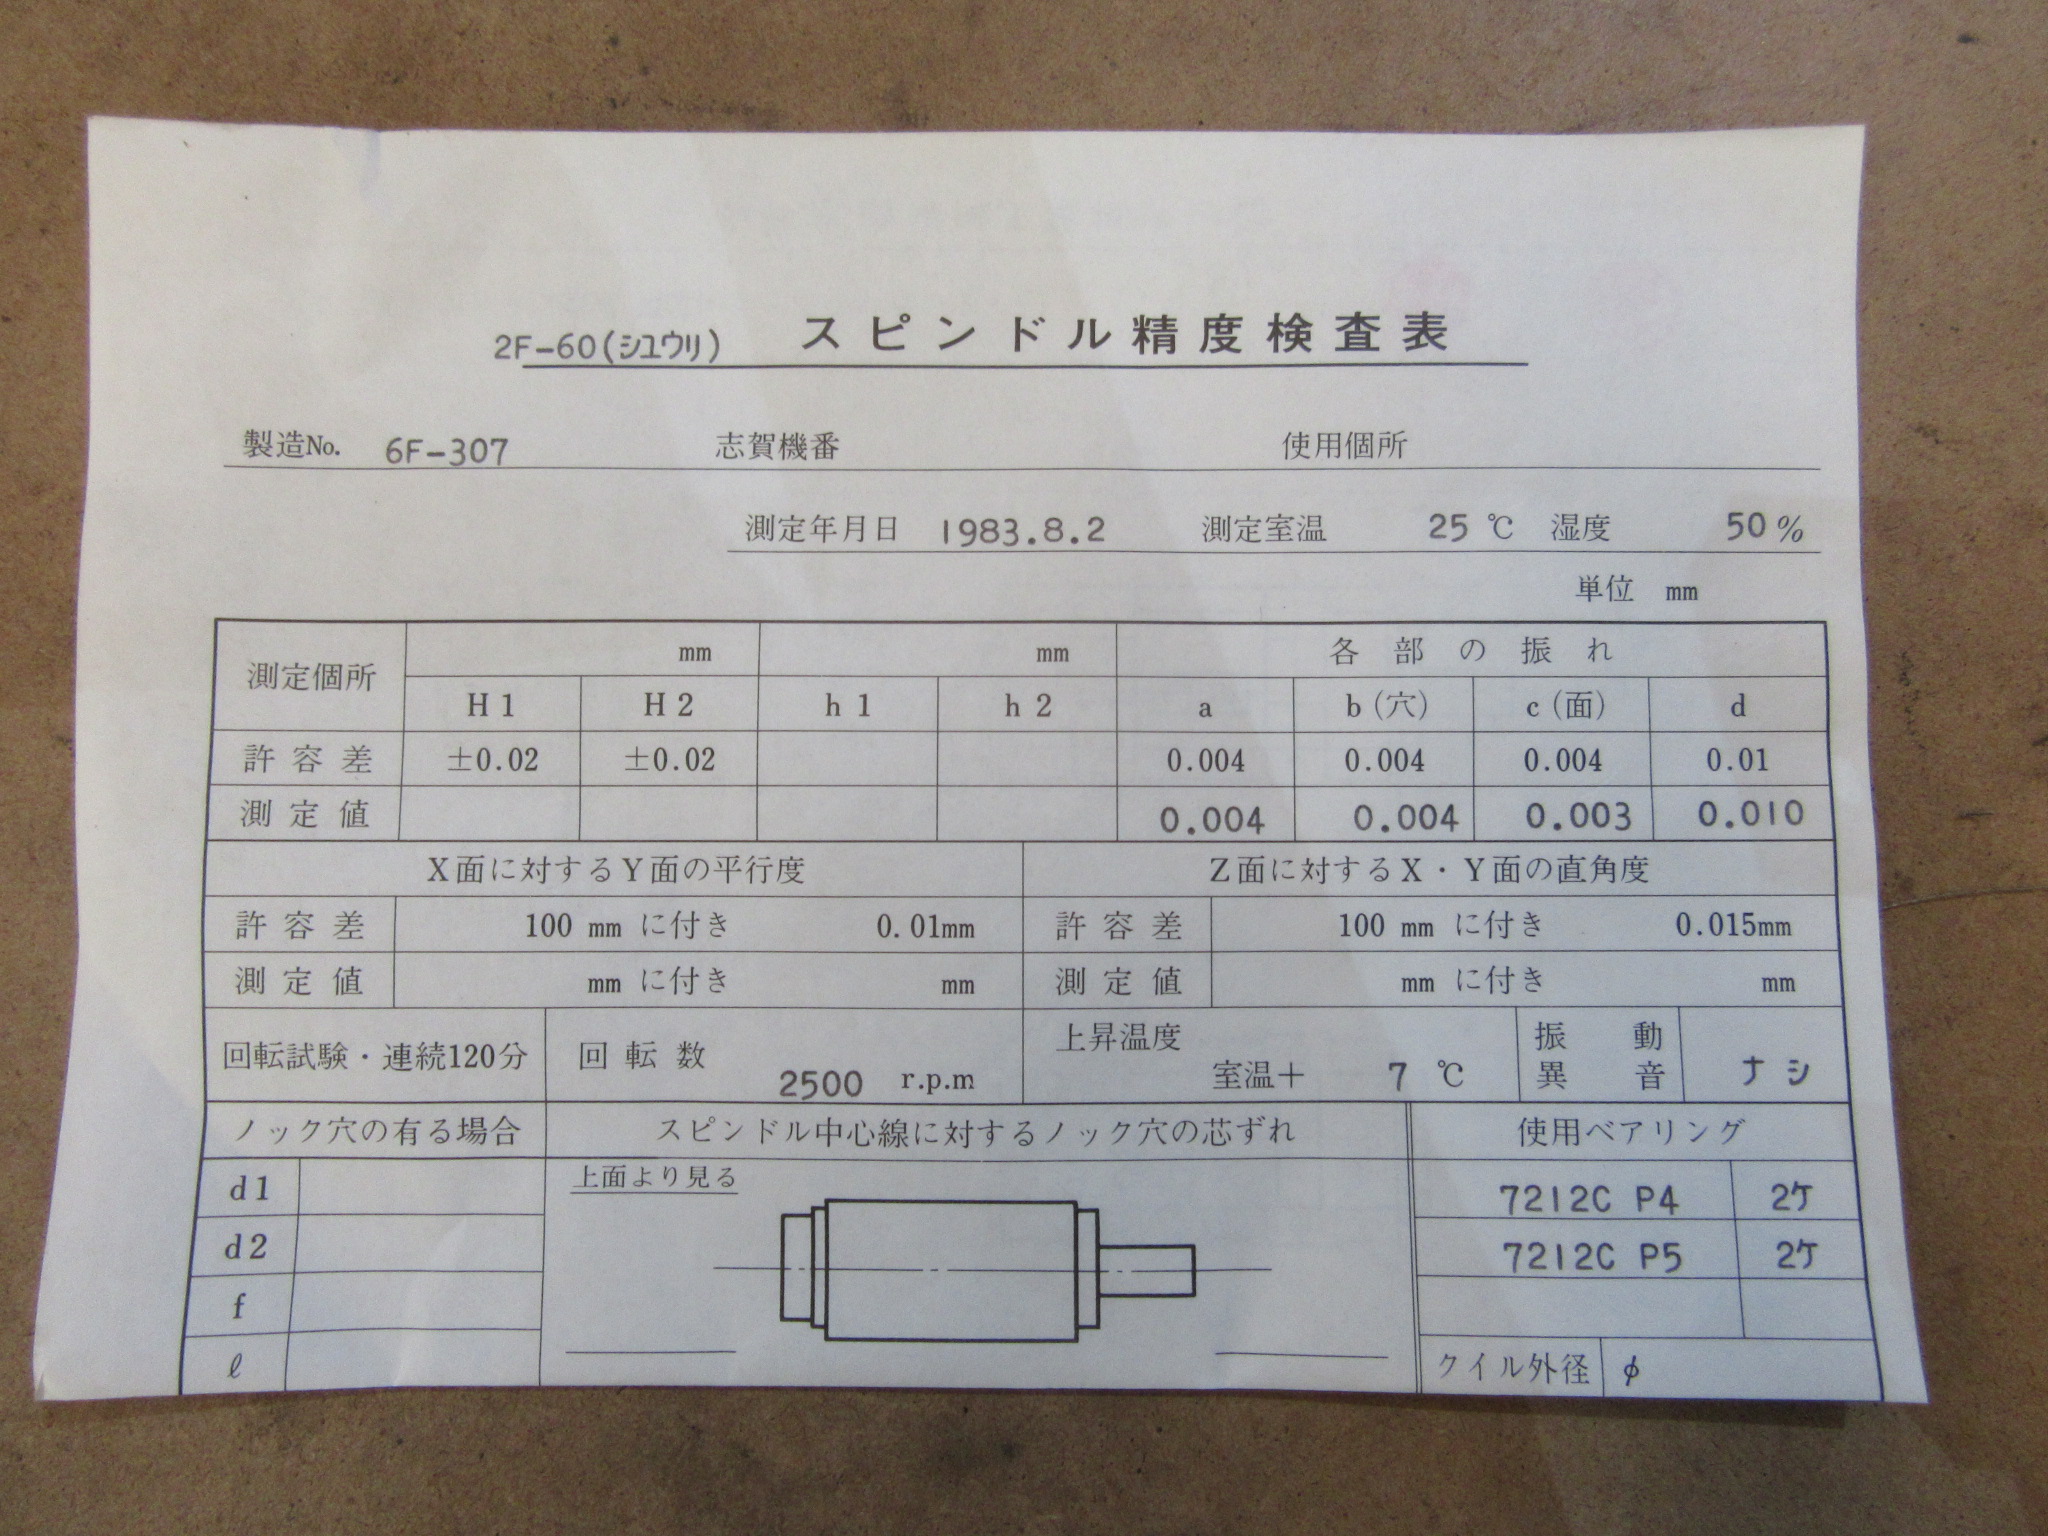 2F-60(シユウリ) スピンドル精度検査表
製造No. 6F-307 志賀機番 使用個所
測定年月日 1983.8.2 測定室温 25 ℃ 湿度 50 %
単位 mm
測定個所 mm mm 各部の振れ
H1 H2 h1 h2 a b(穴) c(面) d
許容差 ±0.02 ±0.02 0.004 0.004 0.004 0.01
測定値 0.004 0.004 0.003 0.010
X面に対するY面の平行度 Z面に対するX・Y面の直角度
許容差 100 mm に付き 0.01mm 許容差 100 mm に付き 0.015mm
測定値 mm に付き mm 測定値 mm に付き mm
回転試験・連続120分 回転数 2500 r.p.m 上昇温度 室温+ 7 ℃ 振動 異音 ナシ
ノック穴の有る場合 スピンドル中心線に対するノック穴の芯ずれ 使用ベアリング
d1 上面より見る 7212C P4 2ケ
d2 7212C P5 2ケ
f
ℓ クイル外径 φ